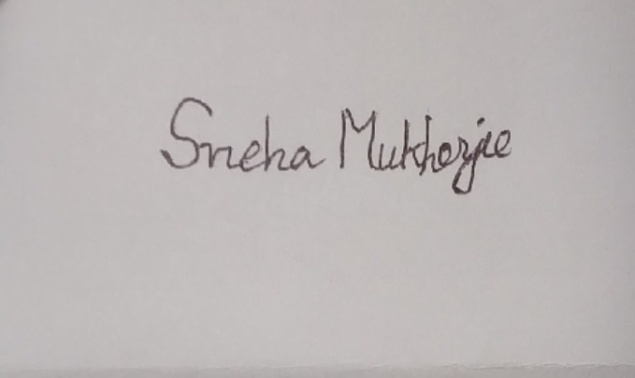 Sneha Mukherjee